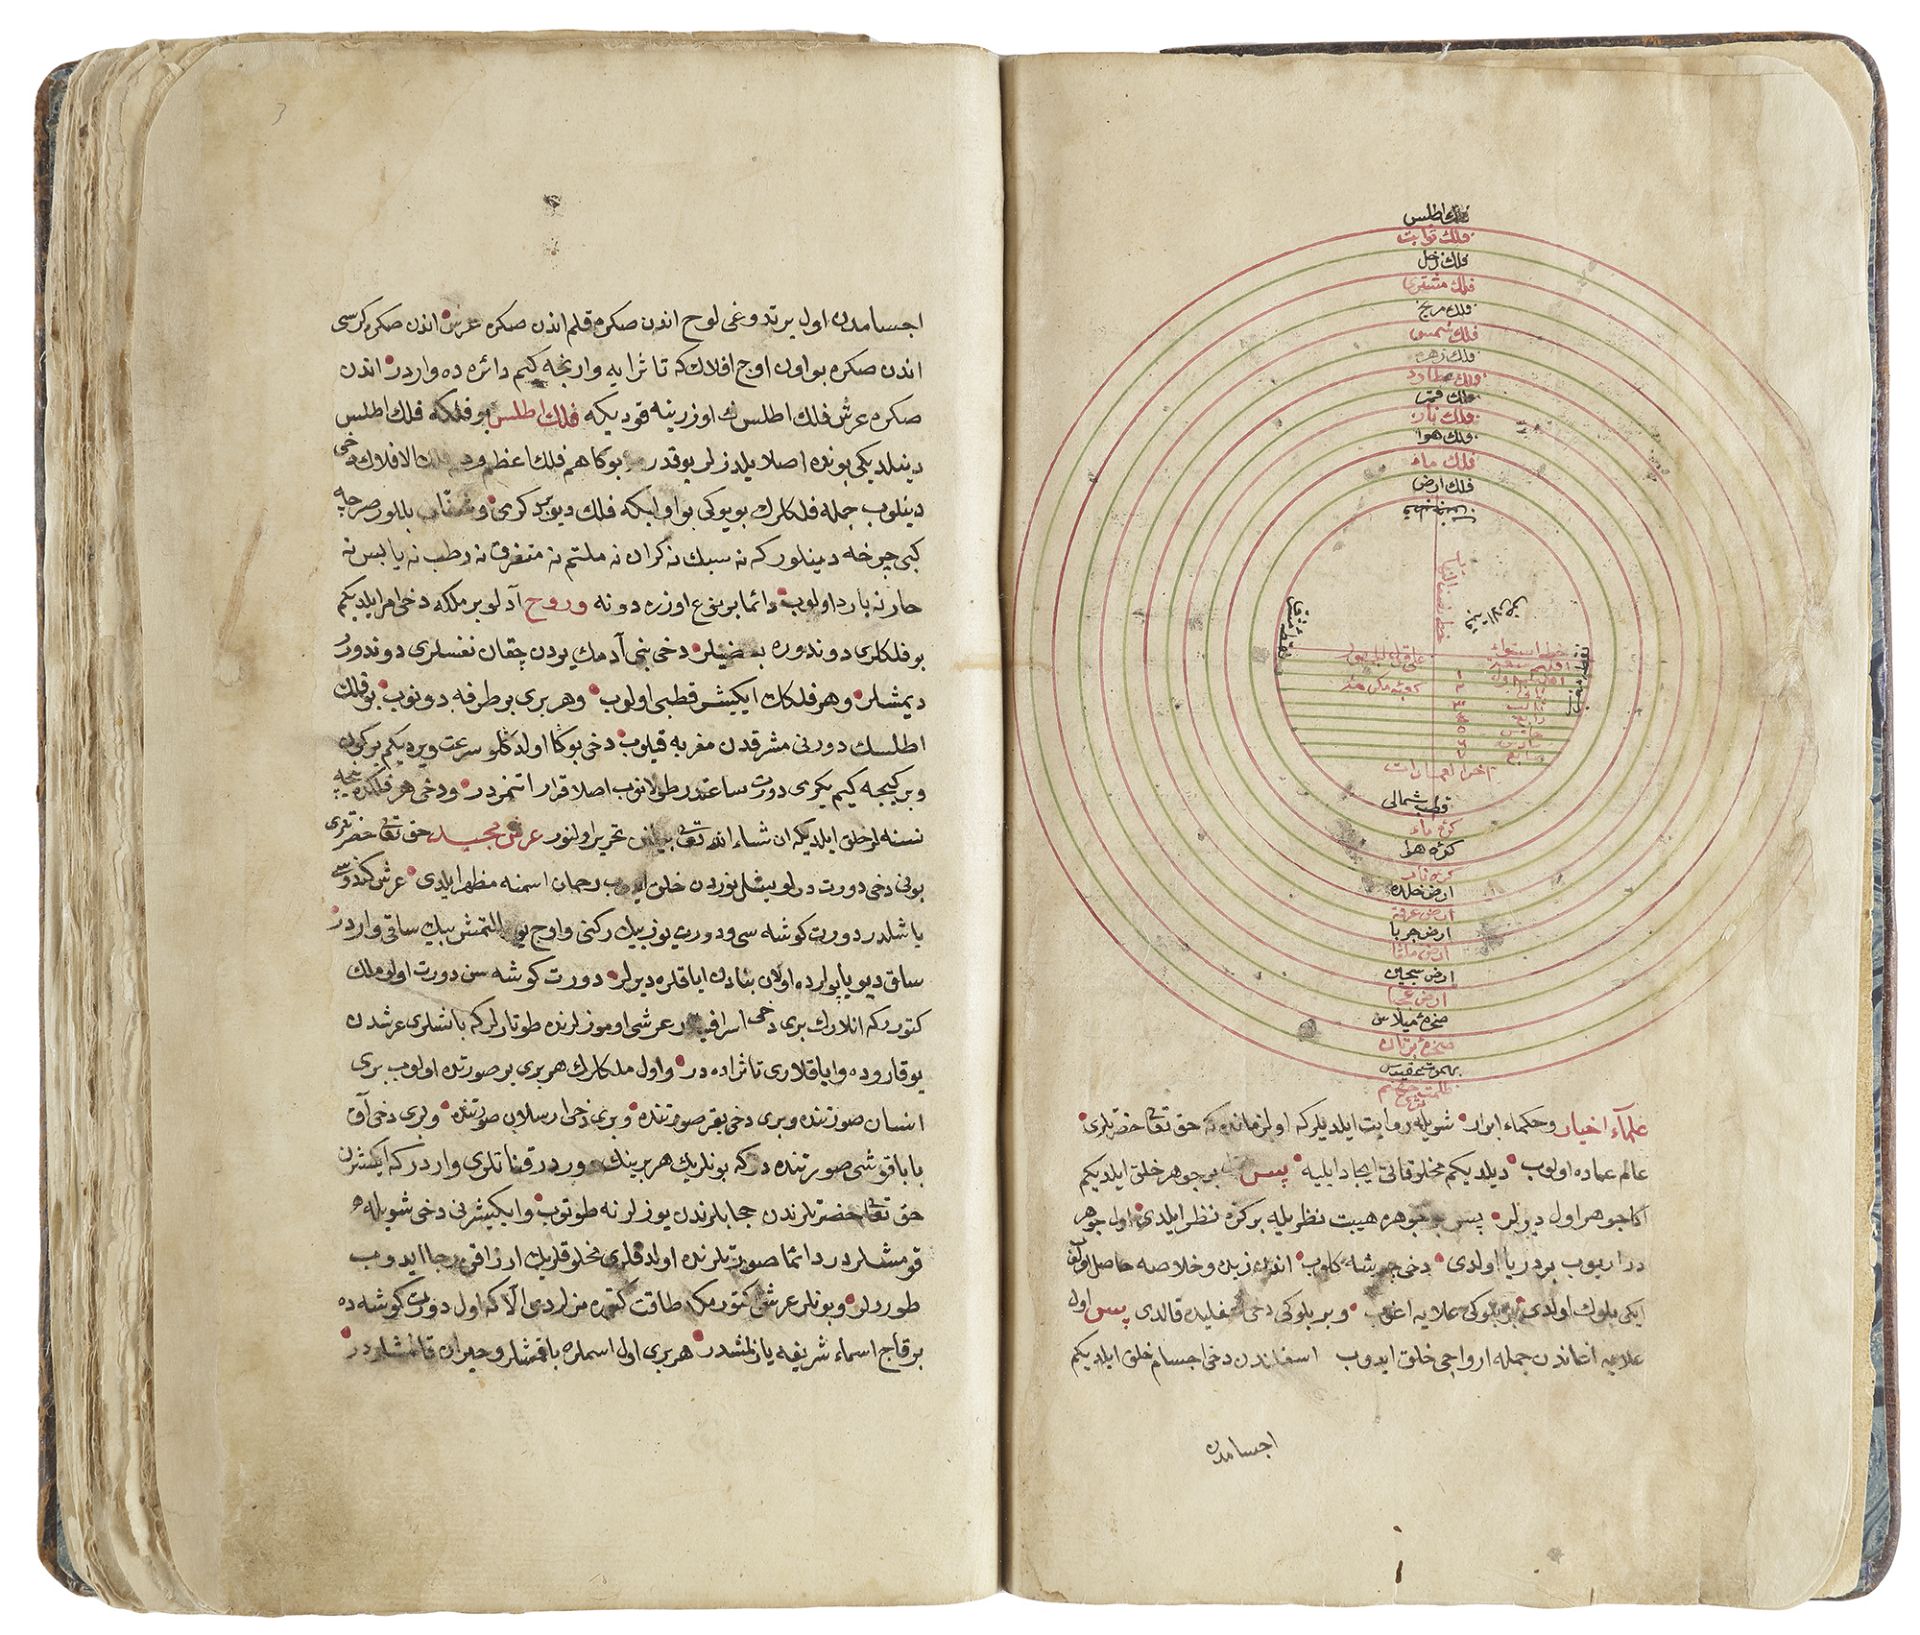 فلك اطلس
فلك ثوابت
فلك زحل
فلك مشتری
فلك مریخ
فلك شمس
فلك زهره
فلك عطارد
فلك قمر
فلك نار
فلك هوا
فلك ماء
فلك ارض
خط نصف النهار
خط استواء
اول
ثالث
رابع
سابع
آخر العمارات
قطب شمالی
كرۀ ماء
كرۀ هوا
كرۀ نار
ارض خلده
ارض عرقه
ارض جربا
ارض ملثا
ارض سجین
ارض عجبا
صخرۀ میلاس
ظلمت جهنم
علماء اخیار وحكماء ابرار شویله روایت ایلدیلركه اول زمانده كه حق تعالی حضرتلری
عالم عماده اولوب دیلدیكم مخلوقاتی ایجاد ایلیه پس بر جوهر خلق ایلدیكم
اكا جوهر اول دیرلر پس جوهره هیبت نظریله بركزه نظر ایلدی اول جوهر
در اریوب بر دریا اولدی دخی جوشه كلوب اندن زبده وخلاصه حاصل اولوب
ایكی بلوك اولدی بر بلوكی علایه اغوب وبر بلوكی دخی سفلیده قالدی پس اول
علایه اغاندن جمله ارواحی خلق ایدوب اسفلندن دخی اجسام خلق ایلدیكم
اجسامدن
اجسامدن اول یرتدوغی لوح اندن صكره قلم اندن صكره عرش اندن صكره كرسی
اندن صكره بو اون اوچ افلاك كه تا ثرایه وارنجه كیم دائره ده واردر اندن
صكره عرش فلك اطلسك اوزرینه قودیكه فلك اطلس بو فلكه فلك اطلس
دینلدیكی بونده اصلا یلدزلر یوقدر بوكا هم فلك اعظم و فلك الافلاك دخی
دینلوب جمله فلكلرك بویوكی بو اولیكه فلك دیو بركری بللور صرچه
كبی چرخه دینلوركه نه سبك نه كران نه ملتم نه متفرق نه رطب نه یابس نه
حار نه بارد اولوب دائما بر نوع اوزره دونه وروح آدلو بر ملكه دخی امر ایلدیكم
بو فلكلری دوندوره بعضیلر دخی بنی آدمك بودن چقان نفسلری دوندورر
دیمشلر وهر فلكك ایكیشر قطبی اولوب وهر بری بر طرفه دونوب بو فلك
اطلسك دورنی مشرقدن مغربه قیلوب دخی بوكا اولدكلو سرعت ویردیكم بر كون
وبر كیجه كیم یكرمی دورت ساعتدر طولانوب اصلا قرار اتمزدر ودخی هر فلكده نیجه
نسنه لر خلق ایلدیكه ان شاء الله تعالی بیانی تحریر اولنور عرش مجید حق تعالی حضرتلری
بونی دخی دورت درلو یشل نوردن خلق ایدوب رحمان اسمنه مظهر ایلدی عرش كندوسی
یاشلدر دورت كوشه سی ودورت یوز بیك ركنی واوچ یوز التمش بیك ساقی واردر
ساق دیو یاپولرده اولان بنادك ایاقلره دیرلر دورت كوشه سن دورت اولو ملك
كتورركه انلرك بری دخی اسرافیلدر عرشی اوموزلرنده طوتارلركه باشلری عرشدن
یوقاروده وایاقلری تا ثراده در واول ملكلرك هر بری بر صورتده اولوب بری
انسان صورتنده وبری دخی بقر صورتنده وبری دخی ارسلان صورتنده وبری دخی آق
بابا قوشی صورتنده دركه بونلریك هر بیرینك قناتلری واردركه ایكیشرن
حق تعالی حضرتلرندن حجابلرندن یوزلرنه طوتوب وایكیشرنی دخی شویله
قومشلردر دائما صورتلرنده اولدقلری مخلوقلریك ارزاقن رجا ایدوب
طورورلر وبونلر عرشی كتورمكه طاقت كتوره مزلردی الا كه اول دورت كوشه ده
بر قاچ اسماء شریفه یازلمشدر هر بری اول اسملره باقمشلر وحیران قالمشلردر